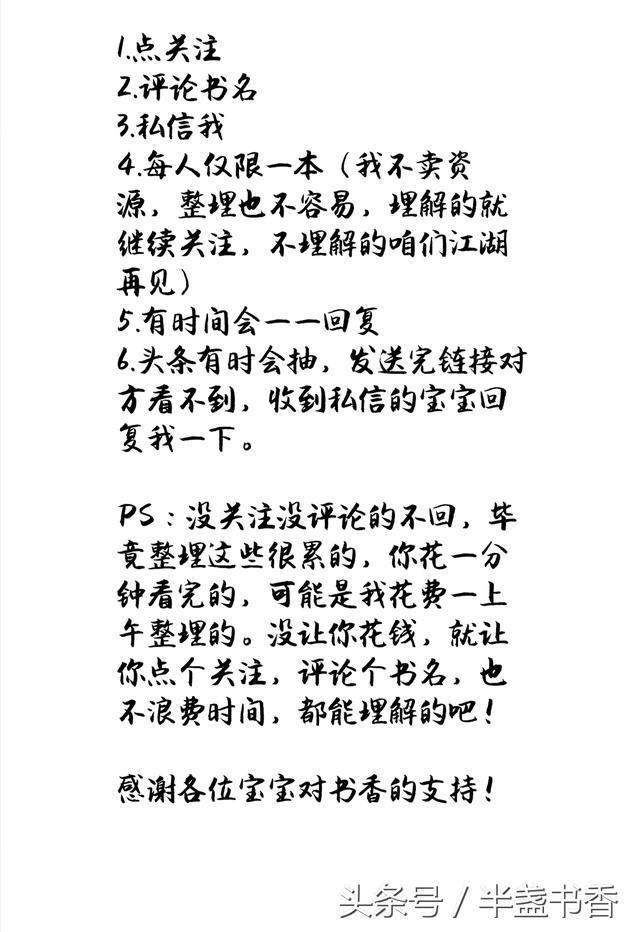 1.点关注
2.评论书名
3.私信我
4.每人仅限一本（我不卖资
源，整理也不容易，理解的就
继续关注，不理解的咱们江湖
再见）
5.有时间会一一回复
6.头条有时会抽，发送完链接对
方看不到，收到私信的宝宝回
复我一下。
PS：没关注没评论的不回，毕
竟整理这些很累的，你花一分
钟看完的，可能是我花费一上
午整理的。没让你花钱，就让
你点个关注，评论个书名，也
不浪费时间，都能理解的吧！
感谢各位宝宝对书香的支持！
头条号 / 半盏书香